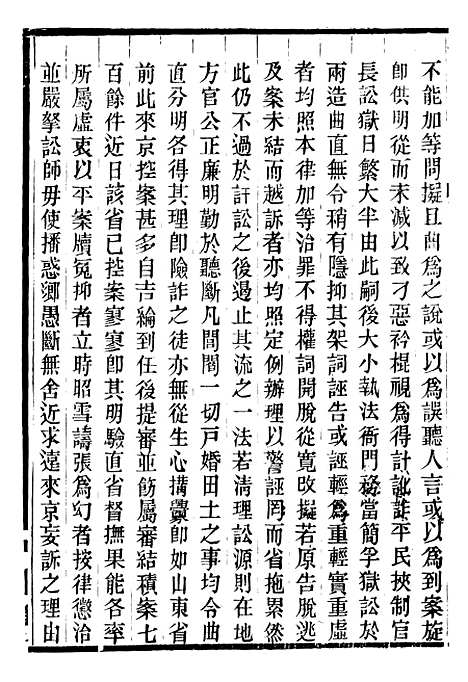 不能加等問擬且曲為之說或以為誤聽人言或以為到案旋
即供明從而末減以致刁惡衿棍視為得計訛詐平民挾制官
長訟獄日繁大半由此嗣後大小執法衙門務當簡孚獄訟於
兩造曲直無令稍有隱抑其架詞誣告或誣輕為重輕實重虛
者均照本律加等治罪不得權詞開脫從寬改擬若原告脫逃
及案未結而越訴者亦均照定例辦理以警誣罔而省拖累然
此仍不過於訐訟之後遏止其流之一法若清理訟源則在地
方官公正廉明勤於聽斷凡閭閻一切戶婚田土之事均令曲
直分明各得其理即險詐之徒亦無從生心搆釁即如山東省
前此來京控案甚多自吉綸到任後提審並飭屬審結積案七
百餘件近日該省已控案寥寥即其明驗直省督撫果能各率
所屬虛衷以平案牘冤抑者立時昭雪譸張為幻者按律懲治
並嚴拏訟師毋使播惑鄉愚斷無舍近求遠來京妄訴之理由